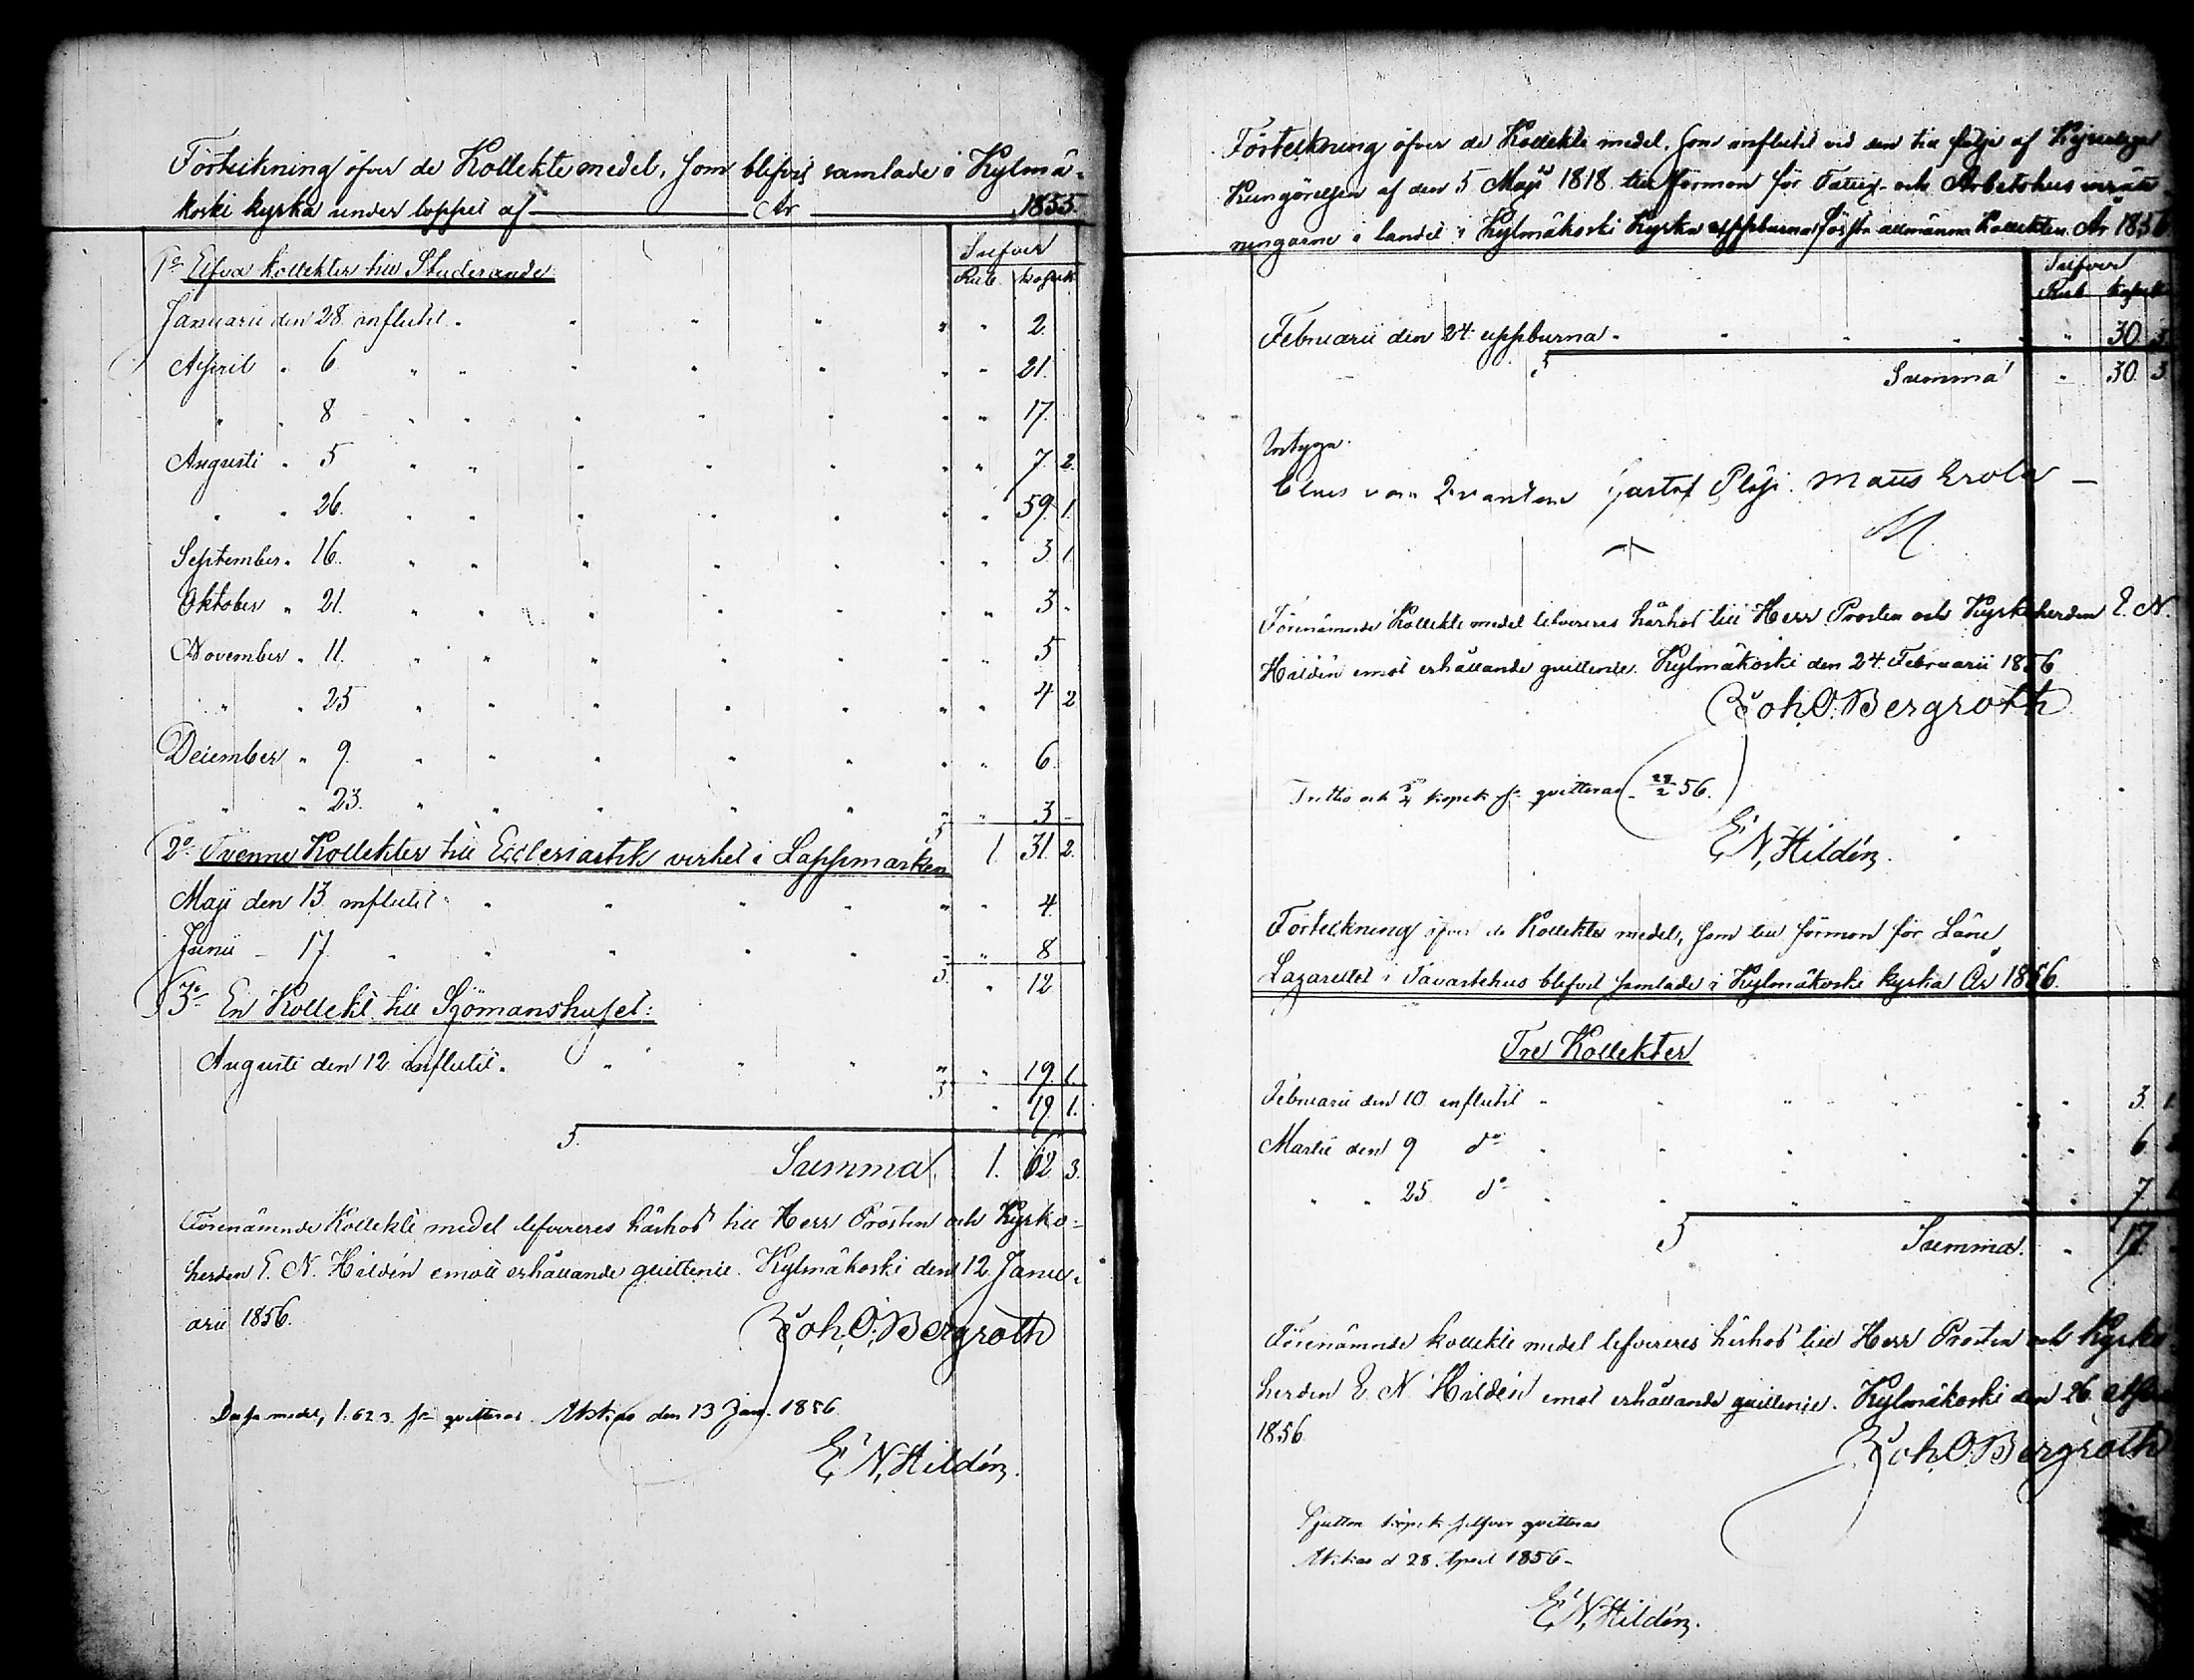 Förteckning öfver de Kollekte medel, som blifvit samlade i Kylmä-
koski kyrka under loppet af År 1855.
Silfver
Rub. kopek
1o Elfva Kollekter till Studerande
Januarii den 28 influtit " " 2.
April " 6 " " 21.
" " 8 " " 17.
Augusti " 5 " " 7. 2.
" " 26. " " 59. 1.
September " 16. " " 3. 1.
Oktober " 21. " " 3 -
November " 11. " " 5
" " 25 " " 4 2
December " 9. " " 6.
" " 23. " " 3 -
1. 31. 2.
2o Tvenne Kollekter till Ecclesiastik verket i Lappmarken
Maji den 13. influtit " " 4.
Junii - 17. " " 8
" 12
3o En Kollekt till Sjömanshuset:
Augusti den 12. influtit. " " 19. 1.
" 19. 1.
Summa 1. 62. 3.
Förenämnde Kollekte medel lefvereres härhos till Herr Prosten och Kyrko-
herden E. N. Hildén emott erhållande quittence. Kylmäkoski den 12 Janu-
arii 1856.
Joh. O. Bergroth
Dessa medel, 1. 62 3. sr qvitteras. Akkas den 13 Jan. 1856
E. N. Hildén.
Förteckning öfver de Kollekte medel, som influtit vid den till följe af Kejserliga
Kungörelsen af den 5 Maji 1818 till förmon för Fattig- och Arbetshus inrätt-
ningarne i landet i Kylmäkoski Kyrka uppburna första allmänna Kollekten År 1856
Silfver
Rub kopek
Februarii den 24 uppburna " " 30. 3
Summa " 30. 3
Intyga.
Gustaf Matts Erola
M
Förenämnde Kollekte medel lefvereres härhos till Herr Prosten och Kyrkoherden E. N.
Hildén emot erhållande quittence. Kylmäkoski den 24. Februarii 1856
Joh. O. Bergroth
Trettio och 3/4 kopek sr qvitteras 28/2 56.
E. N. Hildén.
Förteckning öfver de Kollekte medel, som till förmon för Läns
Lazarettet i Tavastehus blifvit samlade i Kylmäkoski kyrka År 1856.
Tre Kollekter
Februarii den 10 influtit " " 3. 1.
Martii den 9 do " " 6
" " 25. do " " 7.
Summa. " 17.
Förenämnde kollekte medel lefvereres härhos till Herr Prosten och Kyrko
herden E. N. Hildén emot erhållande quittence. Kylmäkoski den 26 April
1856
Joh. O. Bergroth
Sjutton kopek silfver qvitteras
Akkas d 28. April 1856-
E. N. Hildén.